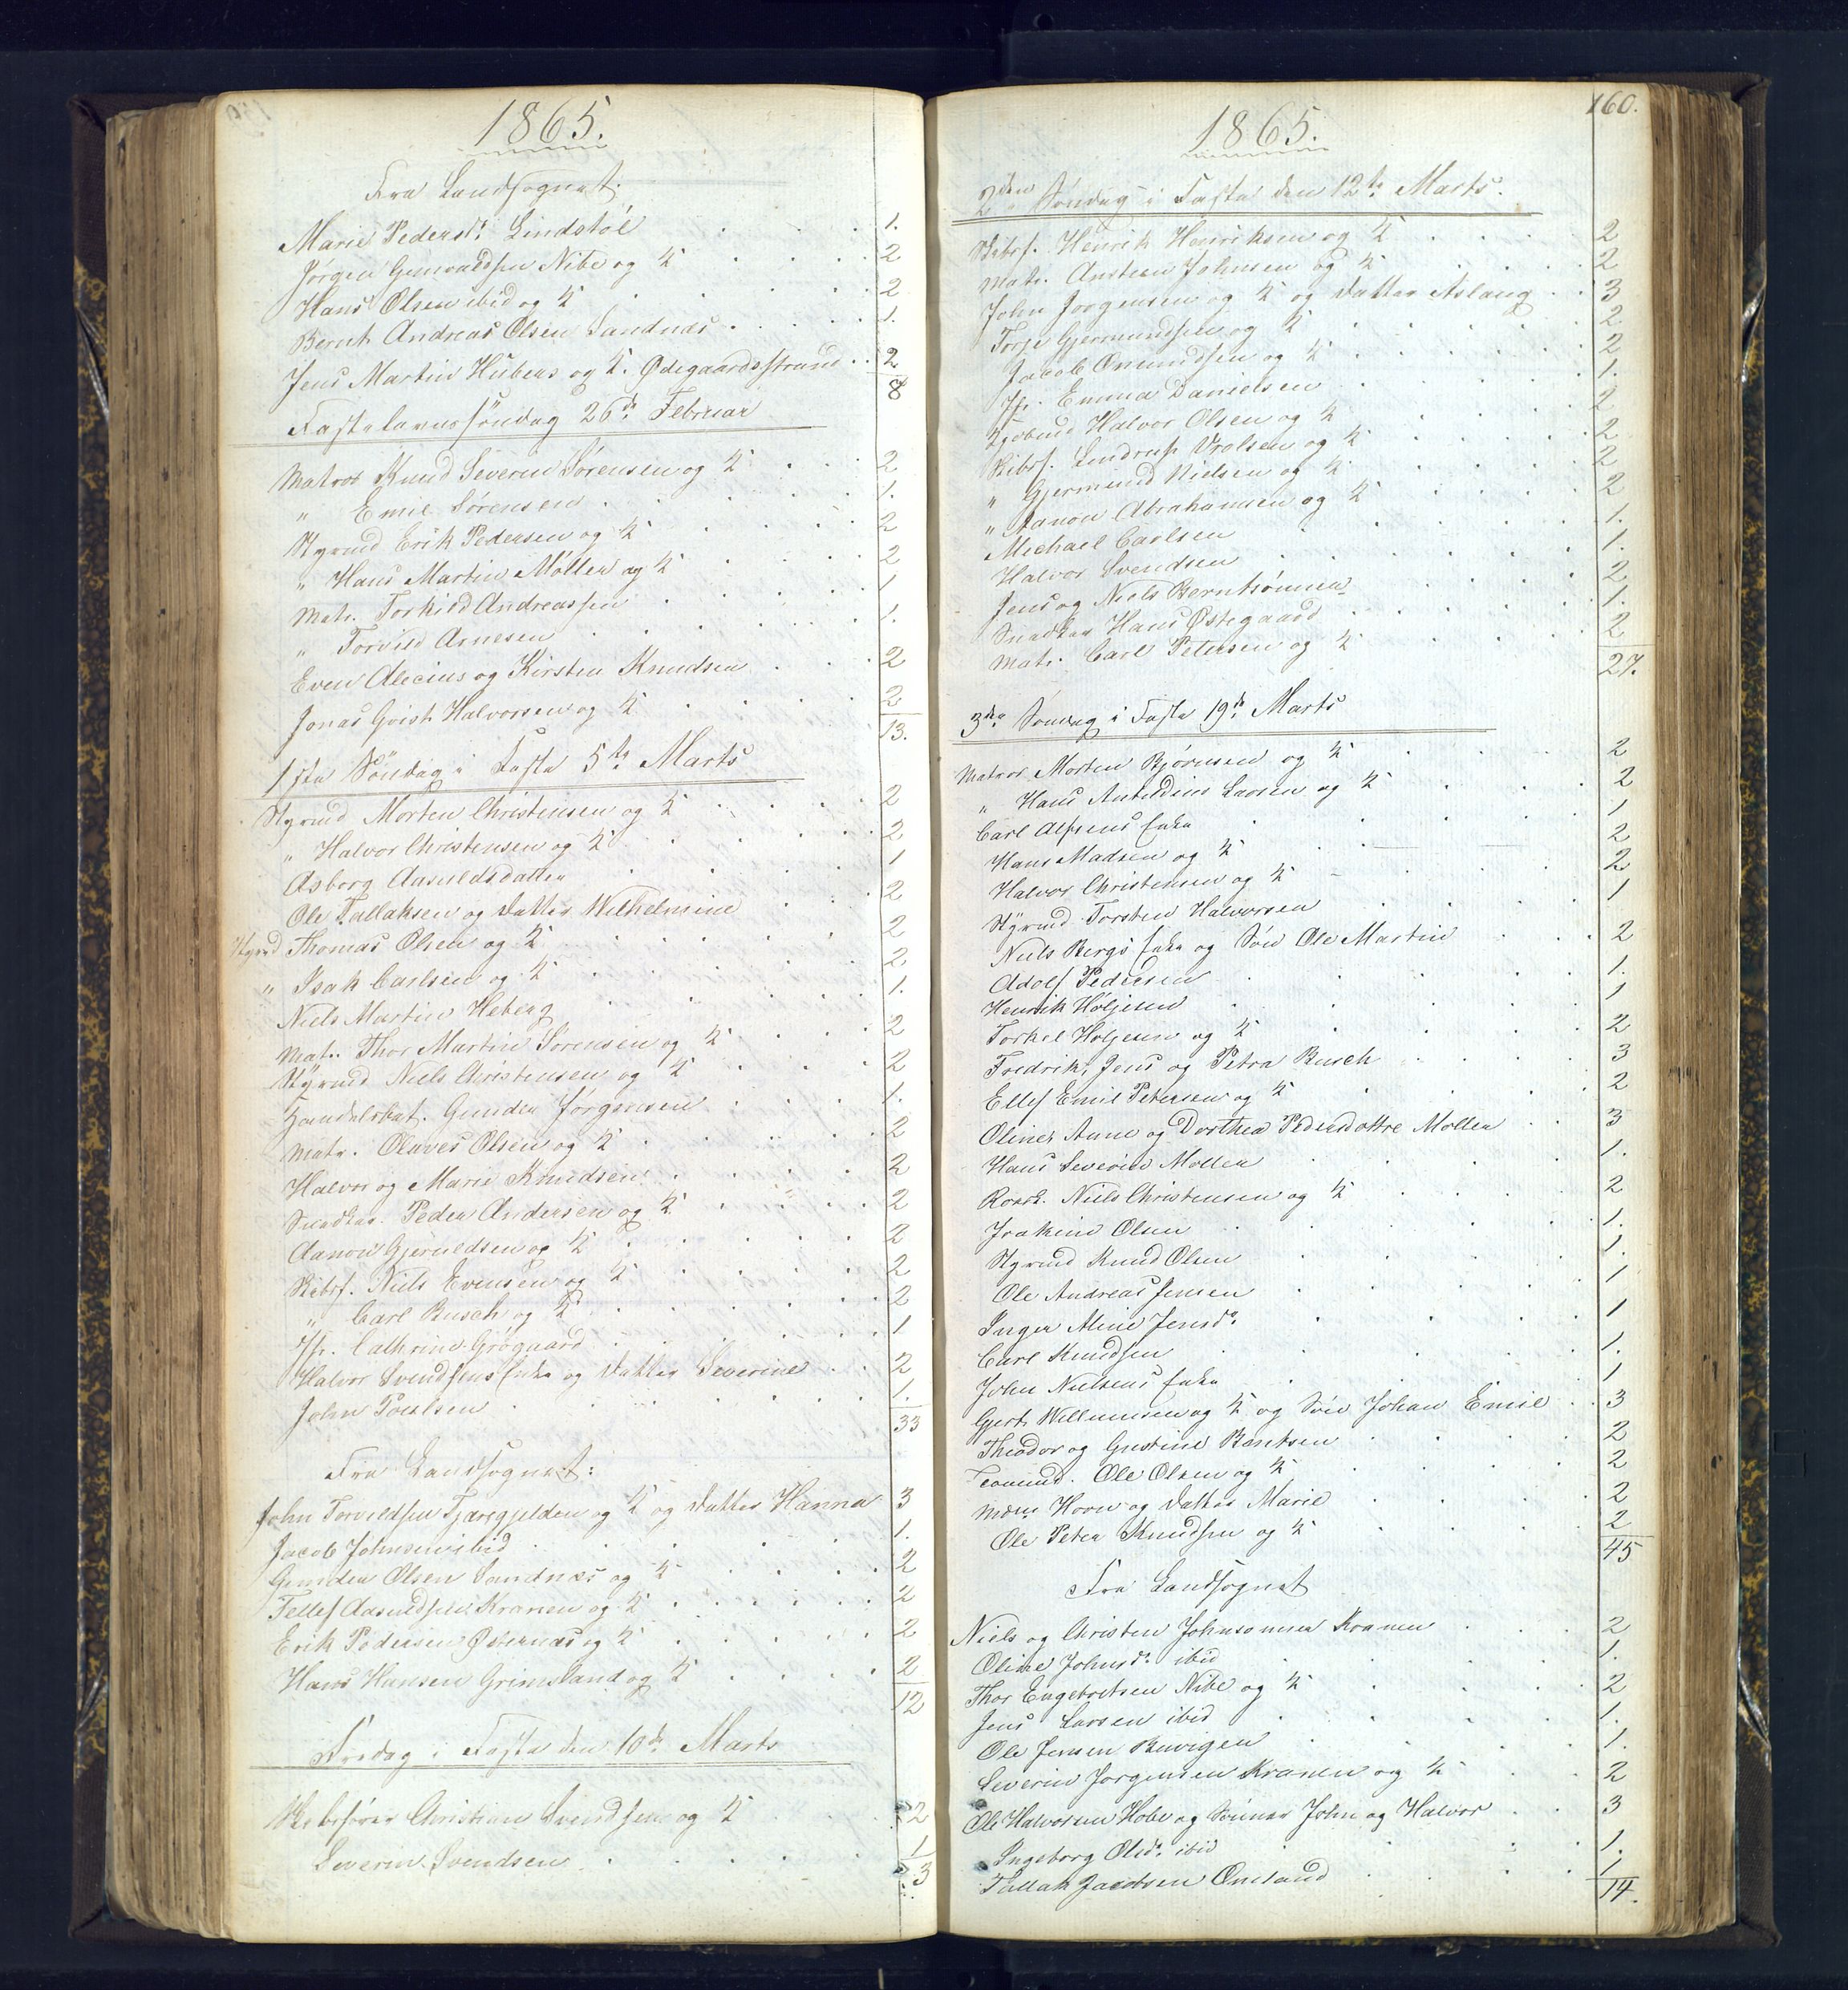 1865.
Fra Landsognet.
Marie Pedersdr. Lindstøl . . . 1.
Jørgen Gunvaldsen Nibe og K . . . . 2
Hans Olsen ibid og K . . . . 2
Bernt Andreas Olsen Sandnæs . . . . 1.
Jens Martin Hubers og K. Ødegaardsstrand . . 2
8
Fastelavnssöndag 26de Februar
Matros Knud Severin Sørensen og K . . . 2
" Emil Sørensen . . . . . 1.
Styrmd Erik Pedersen og K . . . . 2
" Hans Martin Møller og K . . . 2
Matr. Torkild Andreassen . . . . 1
" Torvild Arnesen . . . . . 1.
Even Alecius og Kirsten Knudsen . . . 2
Jonas Qvist Halvorsen og K . . . . 2
13.
1ste Söndag i Faste 5te Marts
Styrmd Morten Christensen og K . . . . 2
" Halvor Christensen og K . . . . 2
Asborg Aasuldsdatter . . . . 1
Ole Tallaksen og Datter Wilhelmine . . . 2
Styrmd Thomas Olsen og K . . . . . 2
" Isak Carlsen og K . . . . . 2
Niels Martin Heberg . . . . . 1.
Matr. Thor Martin Sørensen og K . . . . 2
Styrmd Niels Christensen og K . . . . 2
Handelsbet. Gunder Jørgensen . . . . 1.
Matr. Olaves Olsen og K . . . . . 2
Halvor og Marie Knudsen . . . . 2
Snedker Peder Andersen og K . . . . 2
Aanon Gjeruldsen og K . . . . . 2
Skibsf. Niels Evensen og K . . . . 2
" Carl Busch og K . . . . . 2
Jfr. Cathrine Grøgaard . . . . . 1
Halvor Svendsens Enke og Datter Severine . . 2
John Poulsen . . . . . . 1.
33
Fra Landsognet:
John Torvildsen Tjæregjelden og K og Datter Hanna 3
Jacob Johnsen ibid . . . . . 1.
Gunder Olsen Sandnæs og K . . . . 2
Tellef Aasuldsen Kranen og K . . . . 2
Erik Pedersen Østernæs og K . . . . 2
Hans Hansen Grimsland og K . . . . 2
12
Fredag i Faste den 10de Marts
Skibsfører Christian Svendsen og K . . . 2
Severin Svendsen . . . . . 1
3
160.
1865.
2den Söndag i Faste den 12te Marts.
Skibsf. Henrik Henriksen og K . . . . 2
Matr. Anstein Johnsen og K . . . . 2
John Jørgensen og K og Datter Aslaug . . 3
Torje Gjermundsen og K . . . . . 2
Jacob Onundsen og K . . . . . 2
Jfr. Emma Danielsen . . . . . 1.
Halvor Olsen og K . . . . 2
Skibsf. Lindrup Vrolsen og K . . . . 2
" Gjermund Nielsen og K . . . . 2
" Aanon Abrahamsen og K . . . . 2
Michael Carlsen . . . . . 1.
Halvor Svendsen . . . . . 1.
Jens og Niels Berntsønner . . . . 2
Snedker Hans Østegaard . . . . 1.
Matr. Carl Petersen og K . . . . 2
27.
3die Söndag i Faste 19de Marts
Matros Morten Bjørnsen og K . . . 2
" Hans Larsen og K . . . 2
Carl Enke . . . . . 1
Hans Madsen og K . . . . 2
Halvor Christensen og K . . . . 2
Styrmd Torsten Halvorsen . . . . 1
Niels Bergs Enke og Sön Ole Martin . . . 2
Adolf Pedersen . . . . . 1.
Henrik Holjesen . . . . . 1
Torkel Holjesen og K . . . . . 2
Fredrik, Jens og Petra Busch . . . . 3
Ellef Emil Petersen og K . . . . 2
Oline, Anne og Dorthea Pedersdøttre Møller . . 3
Hans Severin Møller . . . . . 1.
Niels Christensen og K . . . . 2
Joakim Olsen . . . . . 1.
Styrmd Knud Olsen . . . . . 1.
Ole Andreas Jensen . . . . . 1
Inger Aline Jensdr. . . . . . 1
Carl Knudsen . . . . . 1.
John Nielsens Enke . . . . . 1
Gjert Willumsen og K og Sön Johan Emil . . 3
Theodor og Gustine Bentsen . . . . 2
Tømmd. Ole Olsen og K . . . . 2
Horn og Datter Marie . . . . 2
Ole Peter Knudsen og K . . . . 2
45
Fra Landsognet
Niels og Christen Johnsønner Kranen . . . 2
Oline Johnsdr. ibid . . . . 1.
Thor Engebretsen Nibe og K . . . . 2
Jens Larsen ibid . . . . . 1.
Ole Jensen Buvigen . . . . . 1.
Severin Jørgensen Kranen og K . . . 2
Ole Halvorsen Hobe og Sönner John og Halvor . . 3
Ingeborg Olsdr. ibid . . . . . 1.
Tallak Jacobsen Omland . . . . 1
14.